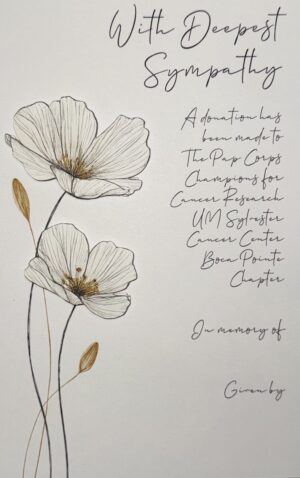 With Deepest
Sympathy
A donation has
been made to
The Pap Corps
Champions for
Cancer Research
UM Sylvester
Cancer Center
Boca Pointe
Chapter
In memory of
Given by